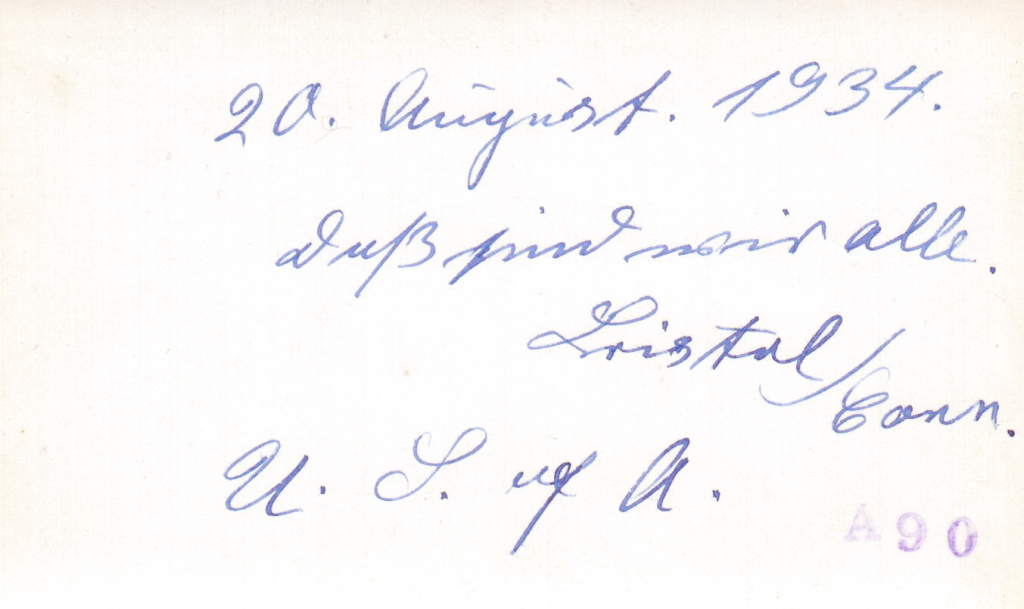 20. August. 1934.
Daß sind wir alle.
Bristol/
Conn.
U. S. of A.
A90